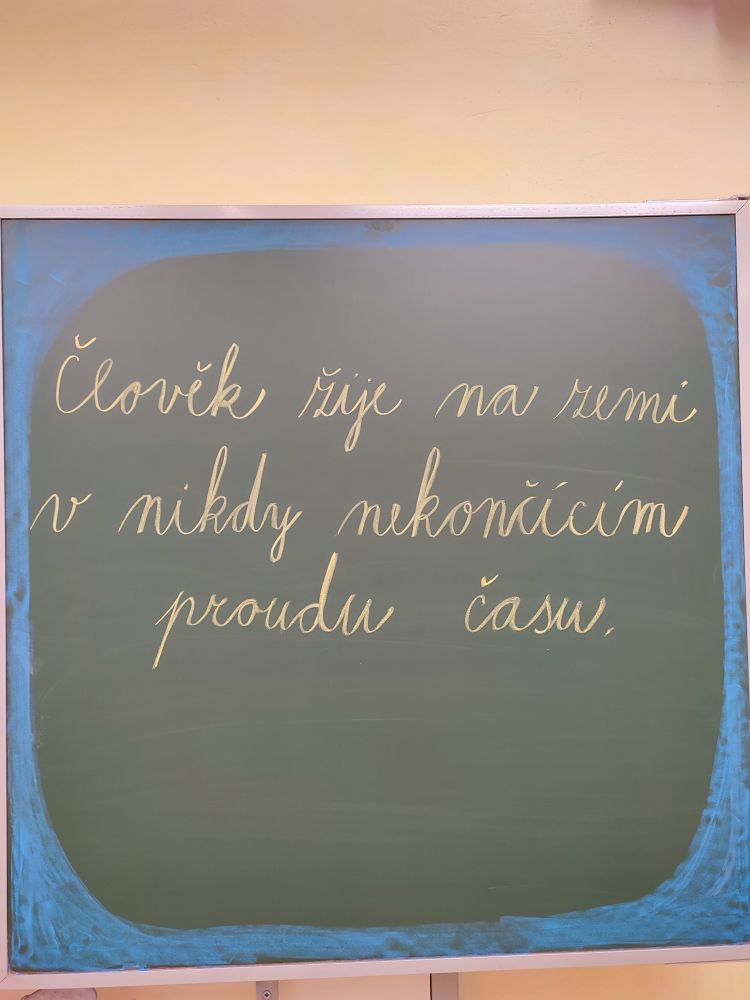 Člověk žije na zemi
v nikdy nekončícím
proudu času.